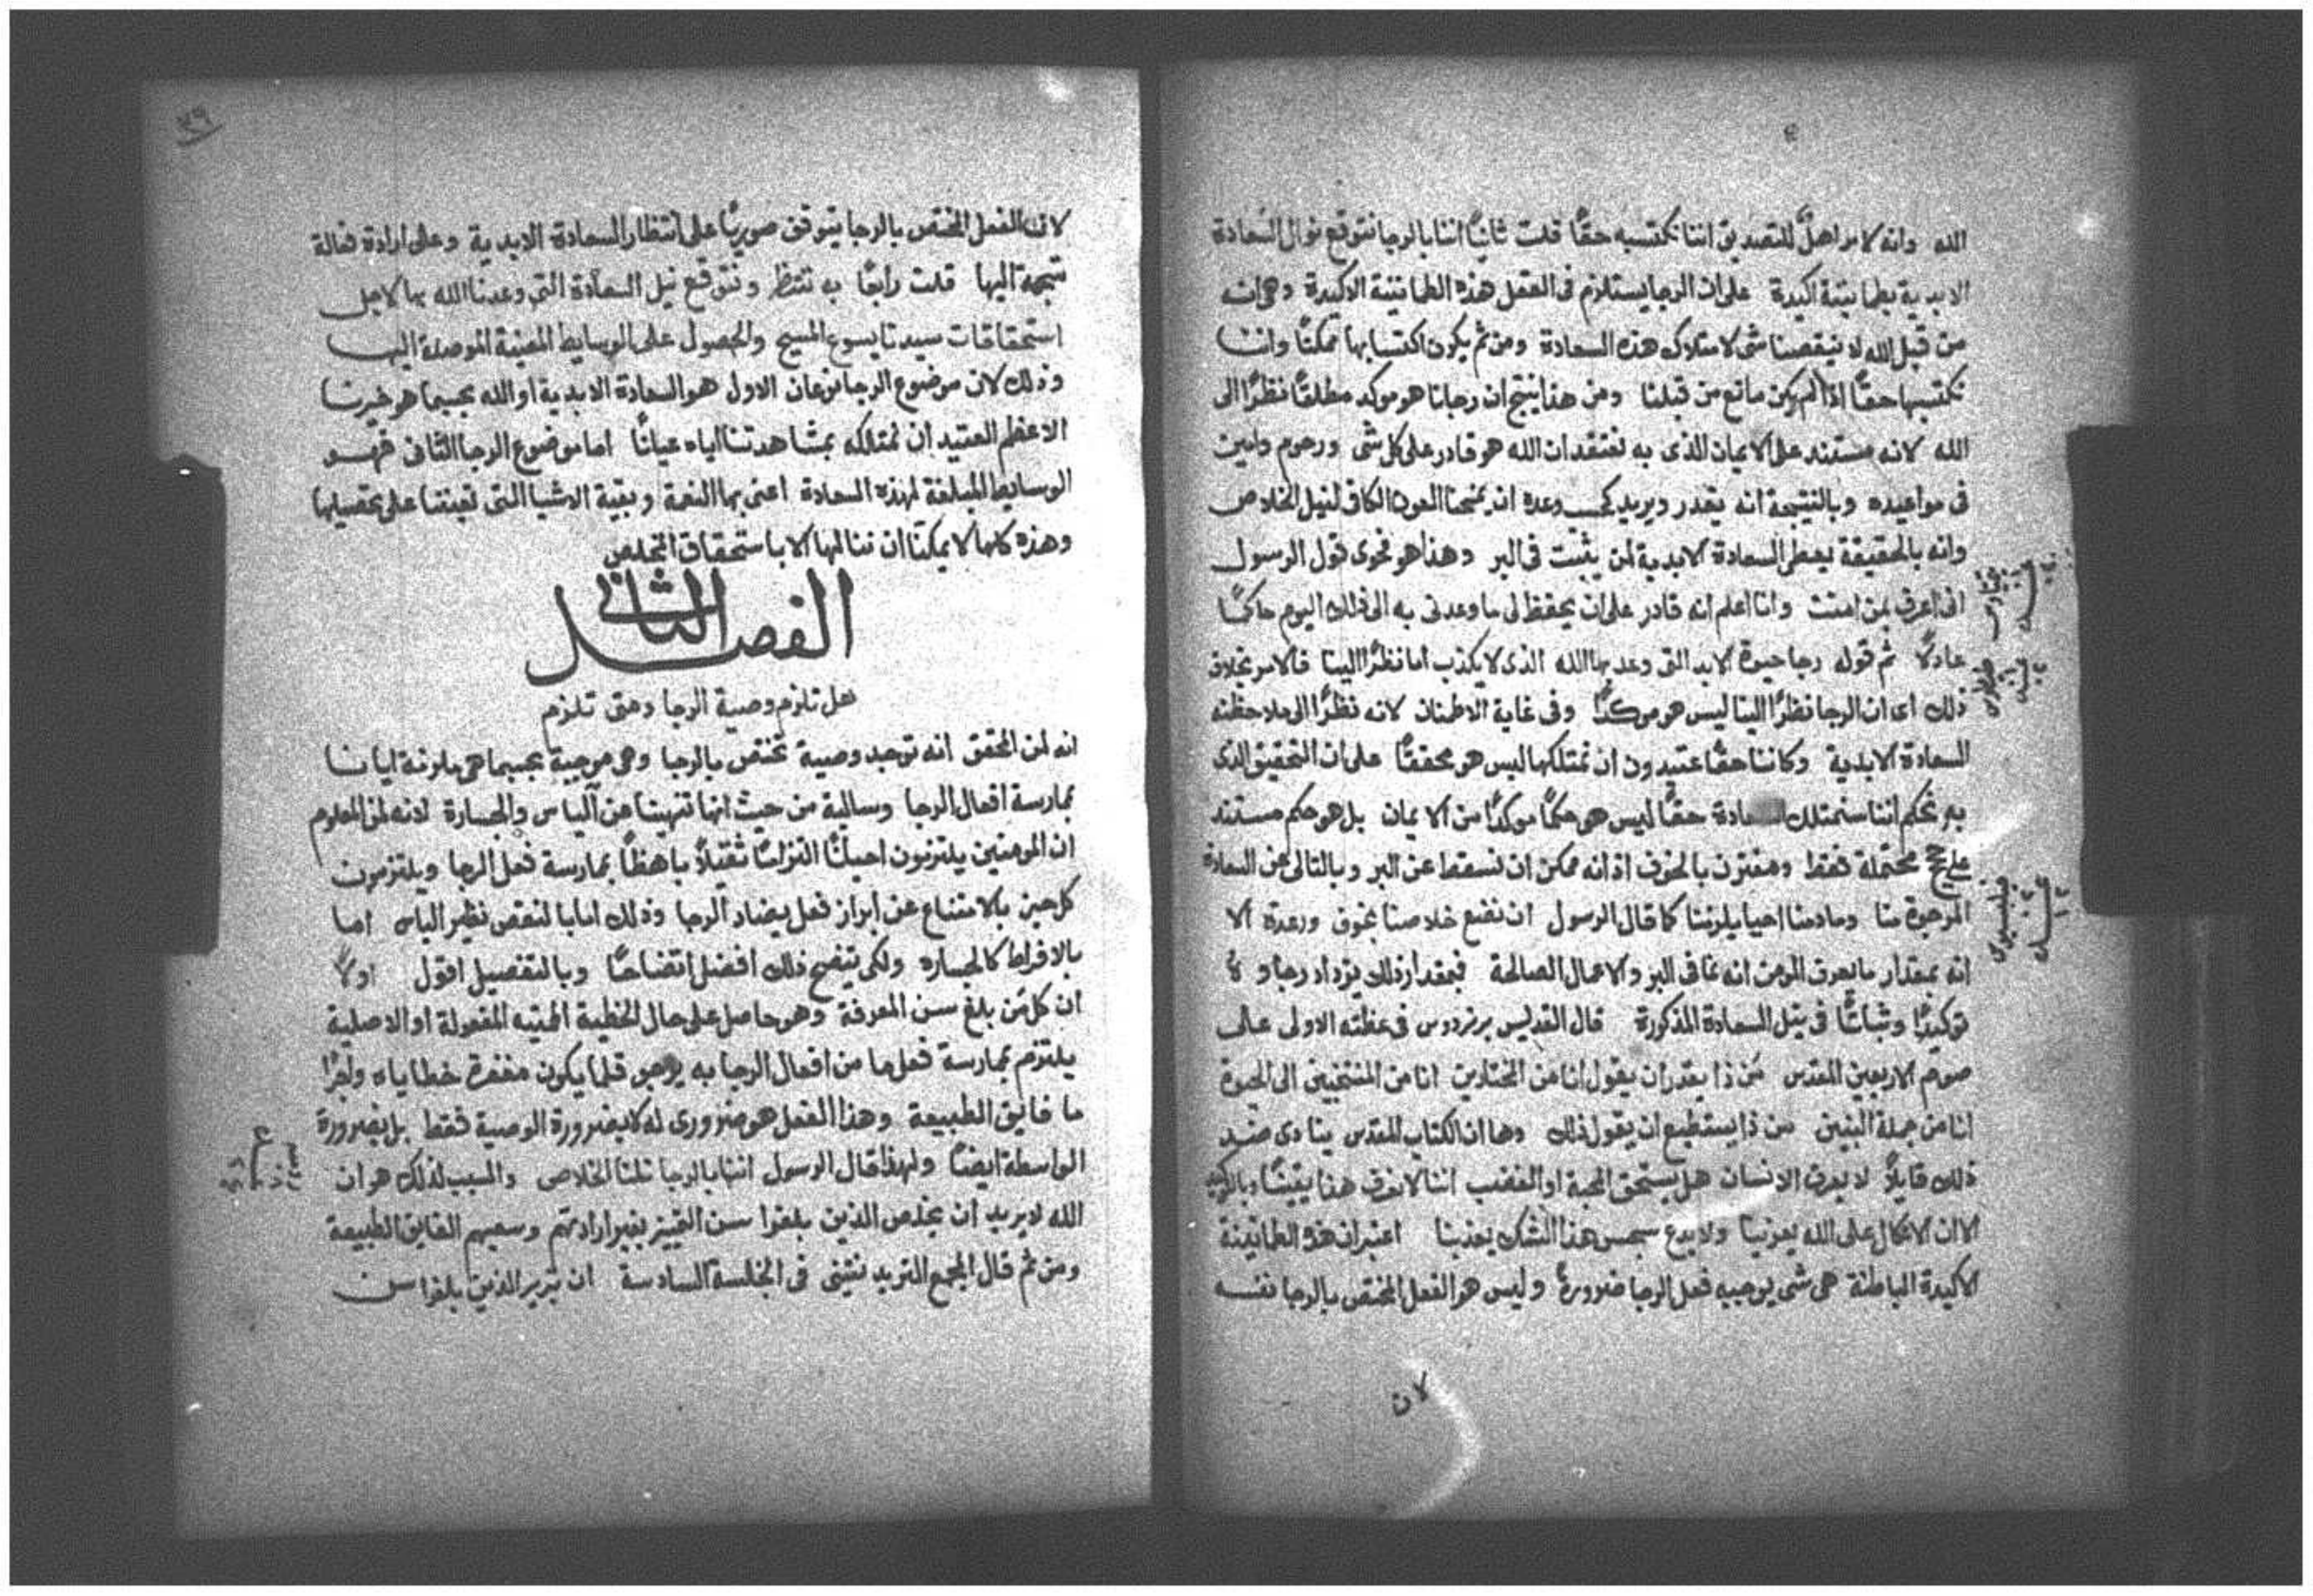 الله وانه لامر اهلٌ للتصديق اننا نكتسبه حقًا قلت ثانيًا اننا بالرجا نتوقع نوال السعادة
الابدية بطمانينة اكيدة على ان الرجا يستلزم فى العقل هذه الطمانينة الاكيدة وهى انه
من قبل الله لا ينقصنا شى لامتلاك هذه السعادة ومن ثم يكون اكتسابها ممكنًا واننا
نكتسبها حقًا اذا لم يكن مانع من قبلنا ومن هذا ينتج ان رجانا هو موكد مطلقًا نظرًا الى
الله لانه مستند على الايمان الذى به نعتقد ان الله هو قادر على كل شى ورحوم وامين
فى مواعيده وبالنتيجة انه يقدر ويريد كحسب وعده ان يمنحنا العون الكافى لنيل الخلاص
وانه بالحقيقة يعطى السعادة الابدية لمن يثبت فى البر وهذا هو فحوى قول الرسول
انى اعرف بمن امنت وانا اعلم انه قادر على ان يحفظ لى ما وعدنى به الى ذلك اليوم حاكمًا
عادلًا ثم قوله رجا حيوة الابد التى وعد بها الله الذى لا يكذب اما نظرًا الينا فالامر بخلاف
ذلك اى ان الرجا نظرًا الينا ليس هو موكدًا وفى غاية الاطمنان لانه نظرًا الى ملاحظته
السعادة الابدية وكاننا حقًا عتيدون ان نمتلكها ليس هو محققًا على ان التحقيق الذى
به نحكم اننا سنمتلك السعادة حقًا ليس هو حكمًا موكدًا من الايمان بل هو حكم مستند
على حجج محتملة فقط ومقترن بالخوف اذ انه ممكن ان نسقط عن البر وبالتالى عن السعادة
المرجوة منا ومادمنا احيا يلزمنا كما قال الرسول ان نصنع خلاصنا بخوف ورعدة الا
انه بمقدار ما يعرف المومن انه نما فى البر والاعمال الصالحة فبمقدار ذلك يزداد رجاوه
توكيدًا وثباتًا فى نيل السعادة المذكورة قال القديس برنردوس فى عظته الاولى على
صوم الاربعين المقدس من ذا يقدر ان يقول انا من المختارين انا من المنتخبين الى الحيوة
انا من جملة البنين من ذا يستطيع ان يقول ذلك وها ان الكتاب المقدس ينادى ضد
ذلك قايلًا لا يعرف الانسان هل يستحق المحبة او الغضب اننا لا نعرف هذا يقينًا وبالتوكيد
الا ان الاتكال على الله يعزينا ولا يدع سجس هذا الشك يعذبنا اعتبر ان هذه الطمانينة
الاكيدة الباطنة هى شى يوجبه فعل الرجا ضرورةً وليس هو الفعل المختص بالرجا نفسه
لان
٣٩
لان الفعل المختص بالرجا يتوقف صوريًا على انتظار السعادة الابدية وعلى ارادة فعالة
متجهة اليها قلت رابعًا به ننتظر ونتوقع نيل السعادة التى وعدنا الله بها لاجل
استحقاقات سيدنا يسوع المسيح والحصول على الوسايط المعينة الموصلة اليها
وذلك لان موضوع الرجا نوعان الاول هو السعادة الابدية او الله بحسبما هو خيرنا
الاعظم العتيد ان نمتلكه بمشاهدتنا اياه عيانًا اما موضوع الرجا الثانى فهو
الوسايط المبلغة لهذه السعادة اعنى بها النعمة وبقية الاشيا التى تعيننا على تحصيلها
وهذه كلها لا يمكننا ان ننالها الا باستحقاق المخلص
الفصل الثانى
هل تلزم وصية الرجا ومتى تلزم
انه لمن المحقق انه توجد وصية تختص بالرجا وهى موجبة بحسبما هى ملزمة ايانا
بمارسة افعال الرجا وسالبة من حيث انها تنهينا عن الياس والجسارة لانه لمن المعلوم
ان المومنين يلتزمون احيانًا التزامًا ثقيلًا باهظًا بمارسة فعل الرجا ويلتزمون
كل حين بالامتناع عن ابراز فعل يضاد الرجا وذلك اما بالنقص نظير الياس اما
بالافراط كالجساره ولكى يتضح ذلك افضل اتضاحًا وبالتفصيل اقول اولًا
ان كل من بلغ سن المعرفة وهو حاصل على حال الخطية المميته المفعولة او الاصلية
يلتزم بمارسة فعل ما من افعال الرجا به يرجو قلما يكون مغفرة خطاياه واجرًا
ما فايق الطبيعة وهذا الفعل هو ضرورى له لا بضرورة الوصية فقط بل بضرورة
الواسطة ايضًا ولهذا قال الرسول اننا بالرجا نلنا الخلاص والسبب لذلك هو ان
الله لا يريد ان يخلص الذين بلغوا سن التمييز بغير ارادتهم وسعيهم الفايق الطبيعة
ومن ثم قال المجمع التريدنتينى فى الجلسة السادسة ان تبرير الذين بلغوا سن